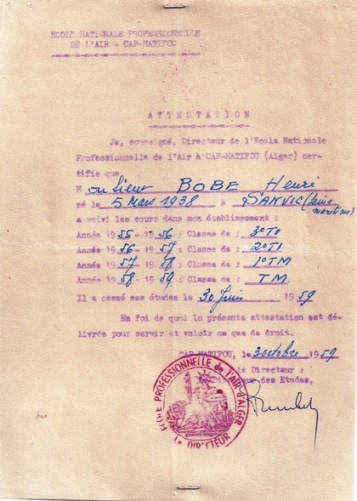 ECOLE NATIONALE PROFESSIONNELLE
DE L'AIR - CAP-MATIFOU
ATTESTATION
Je, soussigné, Directeur de l'Ecole Nationale
Professionnelle de l'Air à CAP-MATIFOU (Alger) cer-
tifie que
Monsieur BOBE Henri
né le 5 Mars 1938 à SANVIC (Seine
maritime)
a suivi les cours dans mon établissement :
Année 1955 - 1956 : Classe de : 3°TI
Année 1956 - 1957 : Classe de : 2°TI
Année 1957 - 1958 : Classe de : 1°TM
Année 1958 - 1959 : Classe de : TM.
Il a cessé ses études le 30 Juin 1959
En foi de quoi la présente attestation est dé-
livrée pour servir et valoir ce que de droit.
CAP-MATIFOU, le 3 octobre 1959
le Directeur :
des Etudes,
ECOLE PROFESSIONNELLE de l'AIR D'ALGER
Le DIRECTEUR